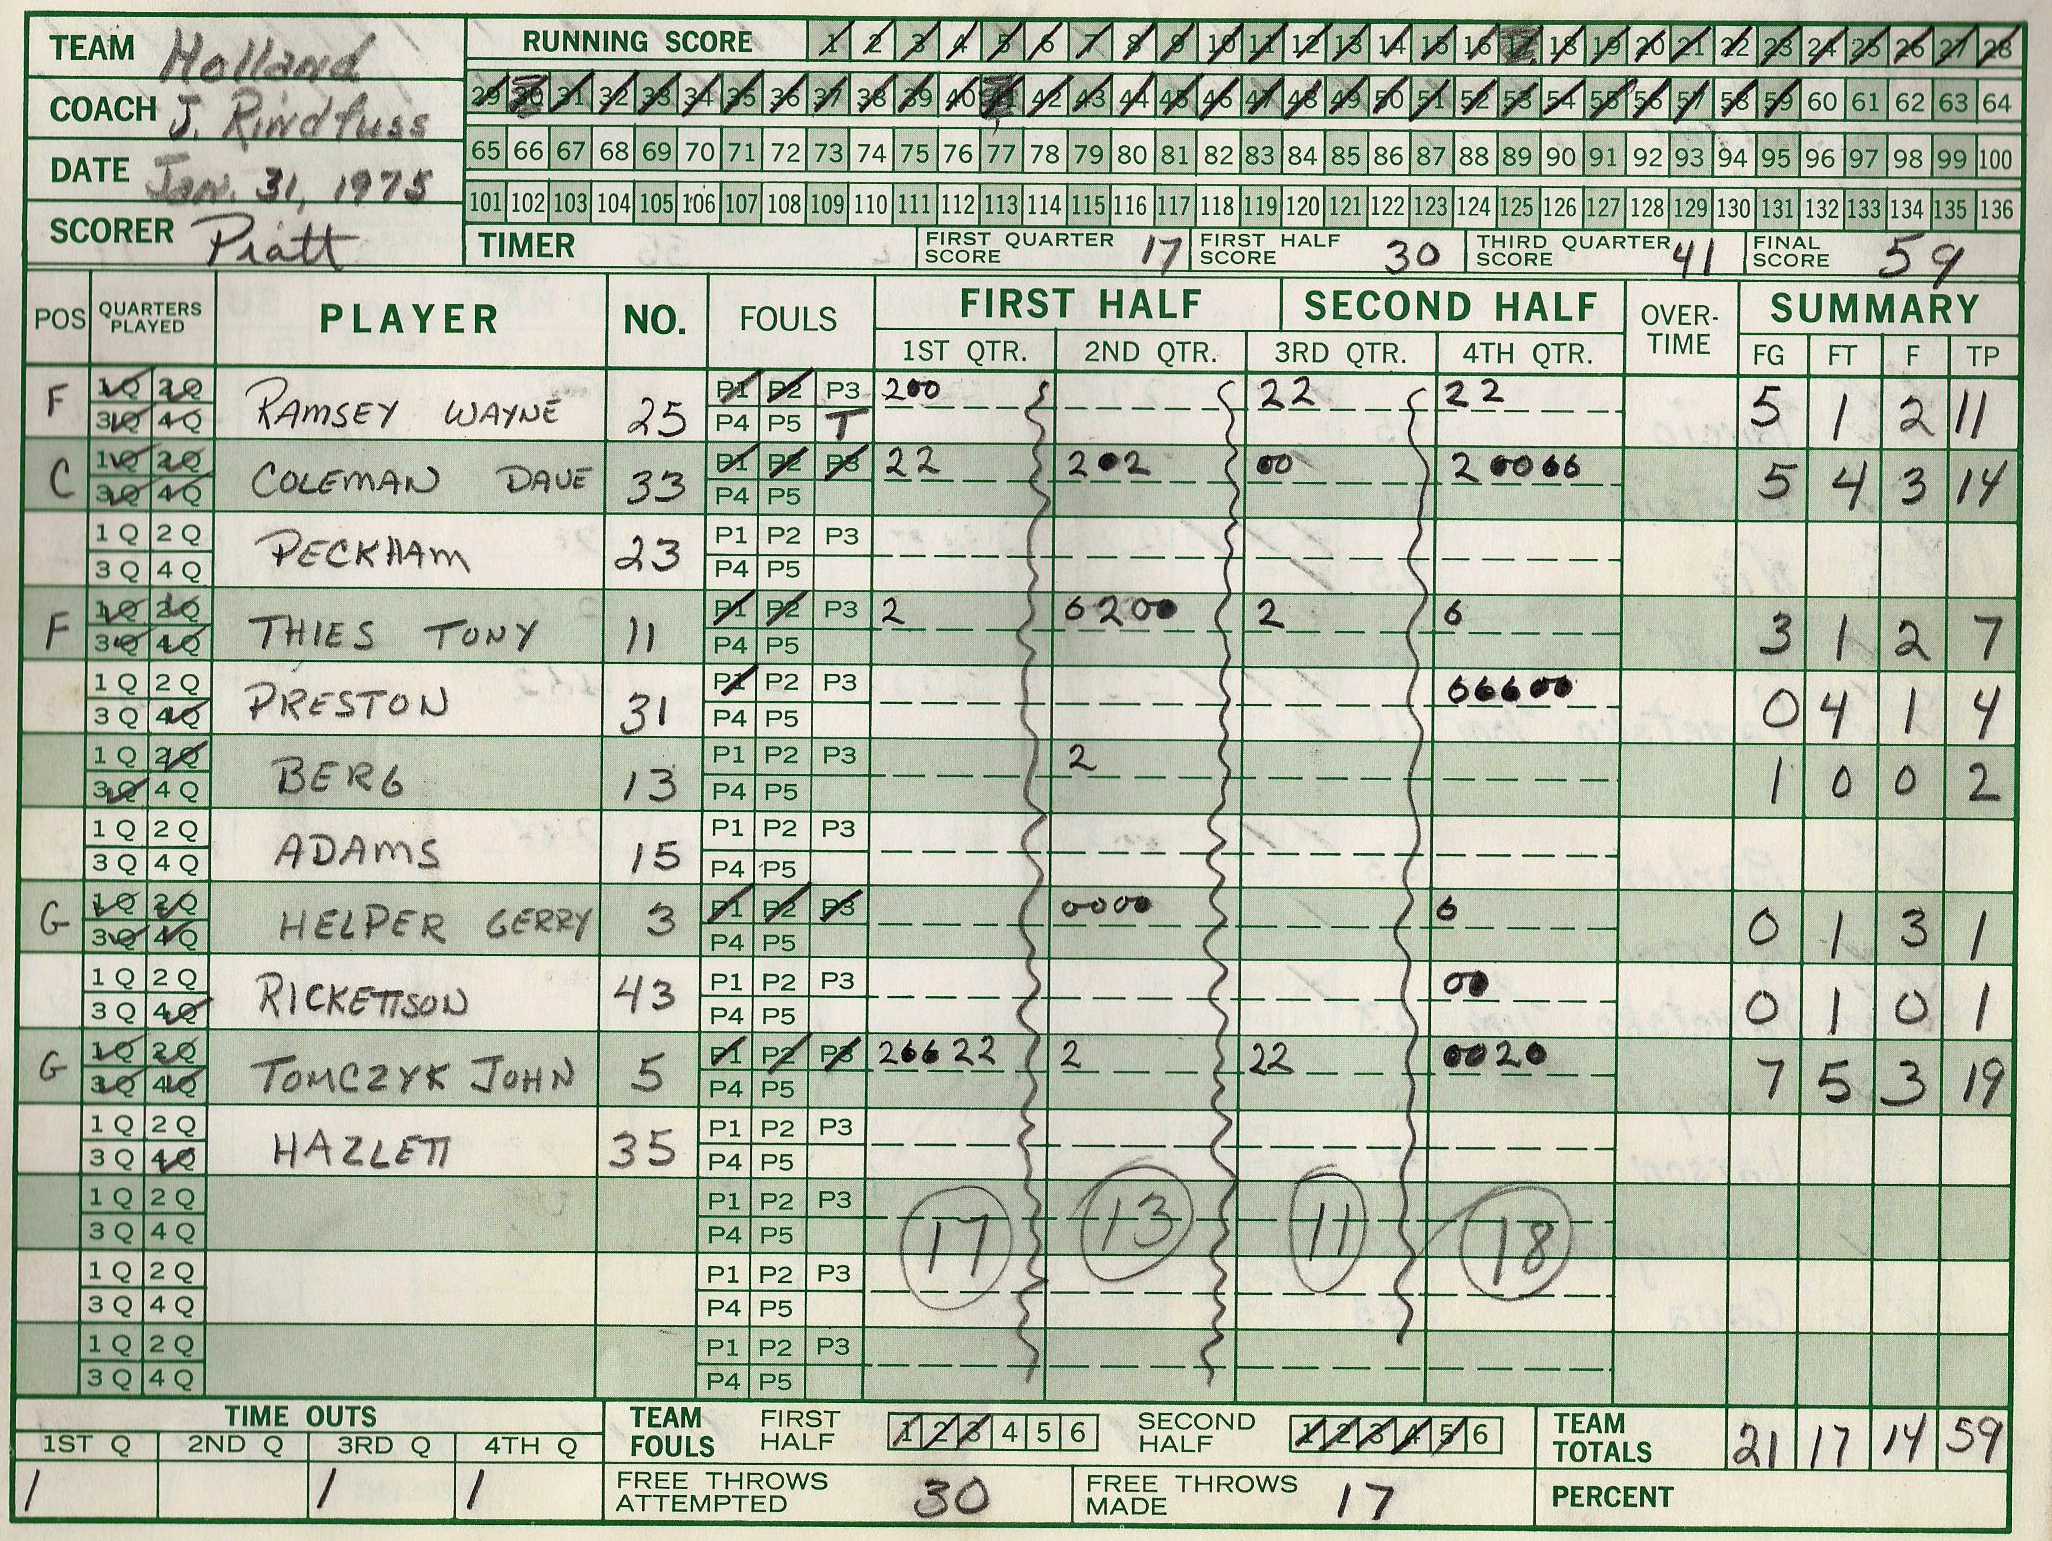 TEAM Holland
COACH J. Rindfuss
DATE Jan. 31, 1975
SCORER Piatt
RUNNING SCORE 1 2 3 4 5 6 7 8 9 10 11 12 13 14 15 16 17 18 19 20 21 22 23 24 25 26 27 28
29 30 31 32 33 34 35 36 37 38 39 40 41 42 43 44 45 46 47 48 49 50 51 52 53 54 55 56 57 58 59 60 61 62 63 64
65 66 67 68 69 70 71 72 73 74 75 76 77 78 79 80 81 82 83 84 85 86 87 88 89 90 91 92 93 94 95 96 97 98 99 100
101 102 103 104 105 106 107 108 109 110 111 112 113 114 115 116 117 118 119 120 121 122 123 124 125 126 127 128 129 130 131 132 133 134 135 136
TIMER FIRST QUARTER SCORE 17 FIRST HALF SCORE 30 THIRD QUARTER SCORE 41 FINAL SCORE 59
POS QUARTERS PLAYED PLAYER NO. FOULS FIRST HALF SECOND HALF OVER-TIME SUMMARY
1ST QTR. 2ND QTR. 3RD QTR. 4TH QTR. FG FT F TP
F 1Q 2Q RAMSEY WAYNE 25 P1 P2 P3 200 22 22 5 1 2 11
3Q 4Q P4 P5 T
C 1Q 2Q COLEMAN DAVE 33 P1 P2 P3 22 202 00 2 0066 5 4 3 14
3Q 4Q P4 P5
1Q 2Q PECKHAM 23 P1 P2 P3
3Q 4Q P4 P5
F 1Q 2Q THIES TONY 11 P1 P2 P3 2 6200 2 6 3 1 2 7
3Q 4Q P4 P5
1Q 2Q PRESTON 31 P1 P2 P3 66600 0 4 1 4
3Q 4Q P4 P5
1Q 2Q BERG 13 P1 P2 P3 2 1 0 0 2
3Q 4Q P4 P5
1Q 2Q ADAMS 15 P1 P2 P3
3Q 4Q P4 P5
G 1Q 2Q HELPER GERRY 3 P1 P2 P3 0000 6 0 1 3 1
3Q 4Q P4 P5
1Q 2Q RICKETTSON 43 P1 P2 P3 00 0 1 0 1
3Q 4Q P4 P5
G 1Q 2Q TOMCZYK JOHN 5 P1 P2 P3 26622 2 22 0020 7 5 3 19
3Q 4Q P4 P5
1Q 2Q HAZLETT 35 P1 P2 P3
3Q 4Q P4 P5
1Q 2Q P1 P2 P3 17 13 11 18
3Q 4Q P4 P5
1Q 2Q P1 P2 P3
3Q 4Q P4 P5
1Q 2Q P1 P2 P3
3Q 4Q P4 P5
TIME OUTS TEAM FOULS FIRST HALF 1 2 3 4 5 6 SECOND HALF 1 2 3 4 5 6 TEAM TOTALS 21 17 14 59
1ST Q 2ND Q 3RD Q 4TH Q
1 1 1 FREE THROWS ATTEMPTED 30 FREE THROWS MADE 17 PERCENT